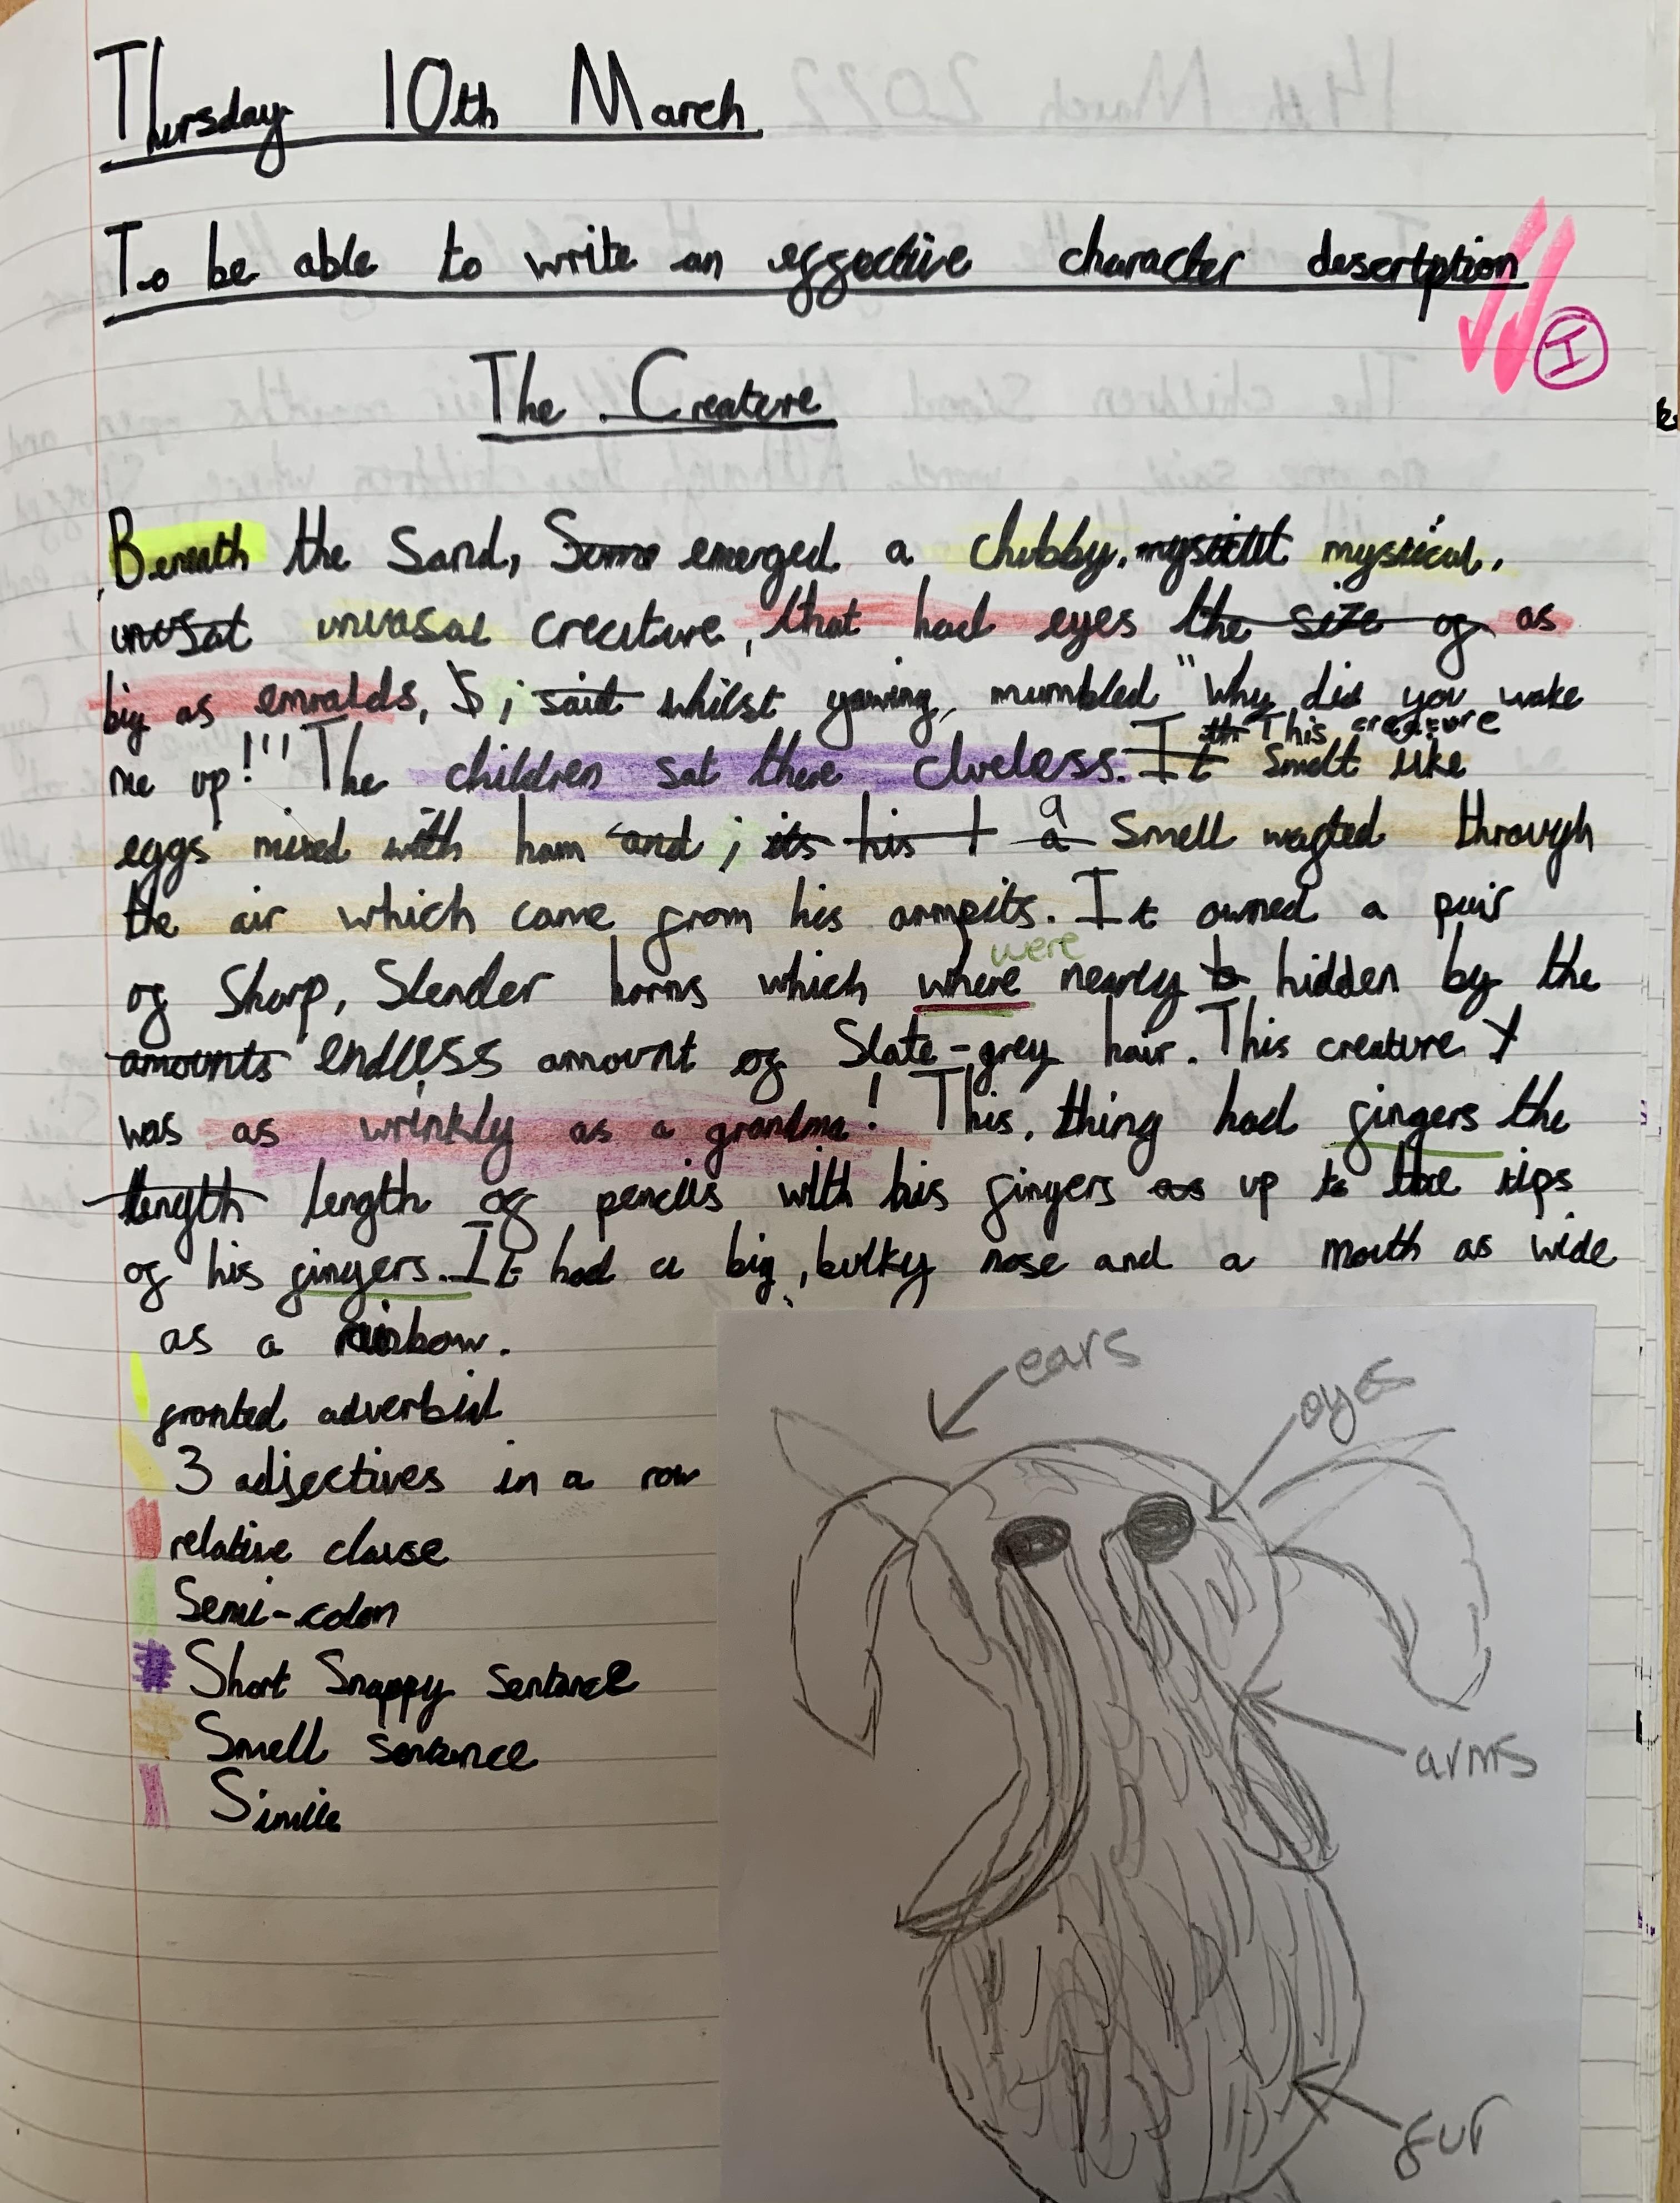 Thursday 10th March
To be able to write an effective character desertption
The Creature
Beneath the Sand, Some emerged a chubby, mystical,
unusal creature, that had eyes the size of as
big as emralds, ; said whilst yawing, mumbled "Why did you wake
This creature
me up!'" The children sat there clueless. It Smelt like
eggs mixed with ham and ; its his a a Smell wafted through
the air which came from his armpits. It owned a pair
were
of Sharp, Slender horns which where nearly b hidden by the
amounts endless amount of Slate-grey hair. This creature
was as wrinkly as a grandma! This, thing had fingers the
length length of pencils with his fingers as up to the tips
of his fingers. It had a big, bulky nose and a mouth as wide
as a rainbow.
fronted adverbial
3 adjectives in a row
relative clause
Semi-colon
Short Snappy Sentance
Smell sentance
Simile
ears
eyes
arms
fur